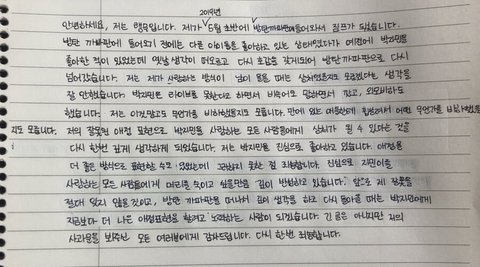 2019년
안녕하세요, 저는 랭무입니다. 제가 5월 초반에 방탄까빠판에 들어와서 점프가 되었습니다.
방탄 까빠판에 들어오기 전에는 다른 아이돌을 좋아하고 있는 상태였다가 예전에 박지민을
좋아한 적이 있었는데 옛날 생각이 떠오르고 다시 호감을 갖게되어 방탄 까빠판으로 다시
넘어갔습니다. 저는 제가 사랑하는 방식이 남이 봤을 때는 상처였을지도 모르겠다는 생각을
잘 안했습니다. 박지민은 라이브를 못한다고 하면서 비꼬아도 말하면서 깠고, 외모비하도
했습니다. 저는 이것말고도 무언가를 비하했을지도 모릅니다. 판에 있는 여동안에 함하면서 어떤 무언가를 비하했을
지도 모릅니다. 저의 잘못된 애정 표현으로 박지민을 사랑하는 모든 사람들에게 상처가 될 수 있다는 것을
다시 한번 깊게 생각하게 되었습니다. 저는 박지민을 진심으로 좋아하고 있습니다. 애정을
더 좋은 방식으로 표현할 수도 있었는데 그러하지 못한 점 죄송합니다. 진심으로 지민이를
사랑하는 모든 사람들에게 머리를 숙이고 싶을만큼 깊이 반성하고 있습니다. 앞으로 제 잘못을
절대 잊지 않을 것이고, 방탄 까빠판을 떠나서 깊이 생각을 하고 다시 돌아올 때는 박지민에게
지금보다 더 나은 애정표현을 할려고 노력하는 사람이 되겠습니다. 긴 글은 아니지만 저의
사과문을 봐주신 모든 여러분에게 감사드립니다. 다시 한번 죄송합니다.